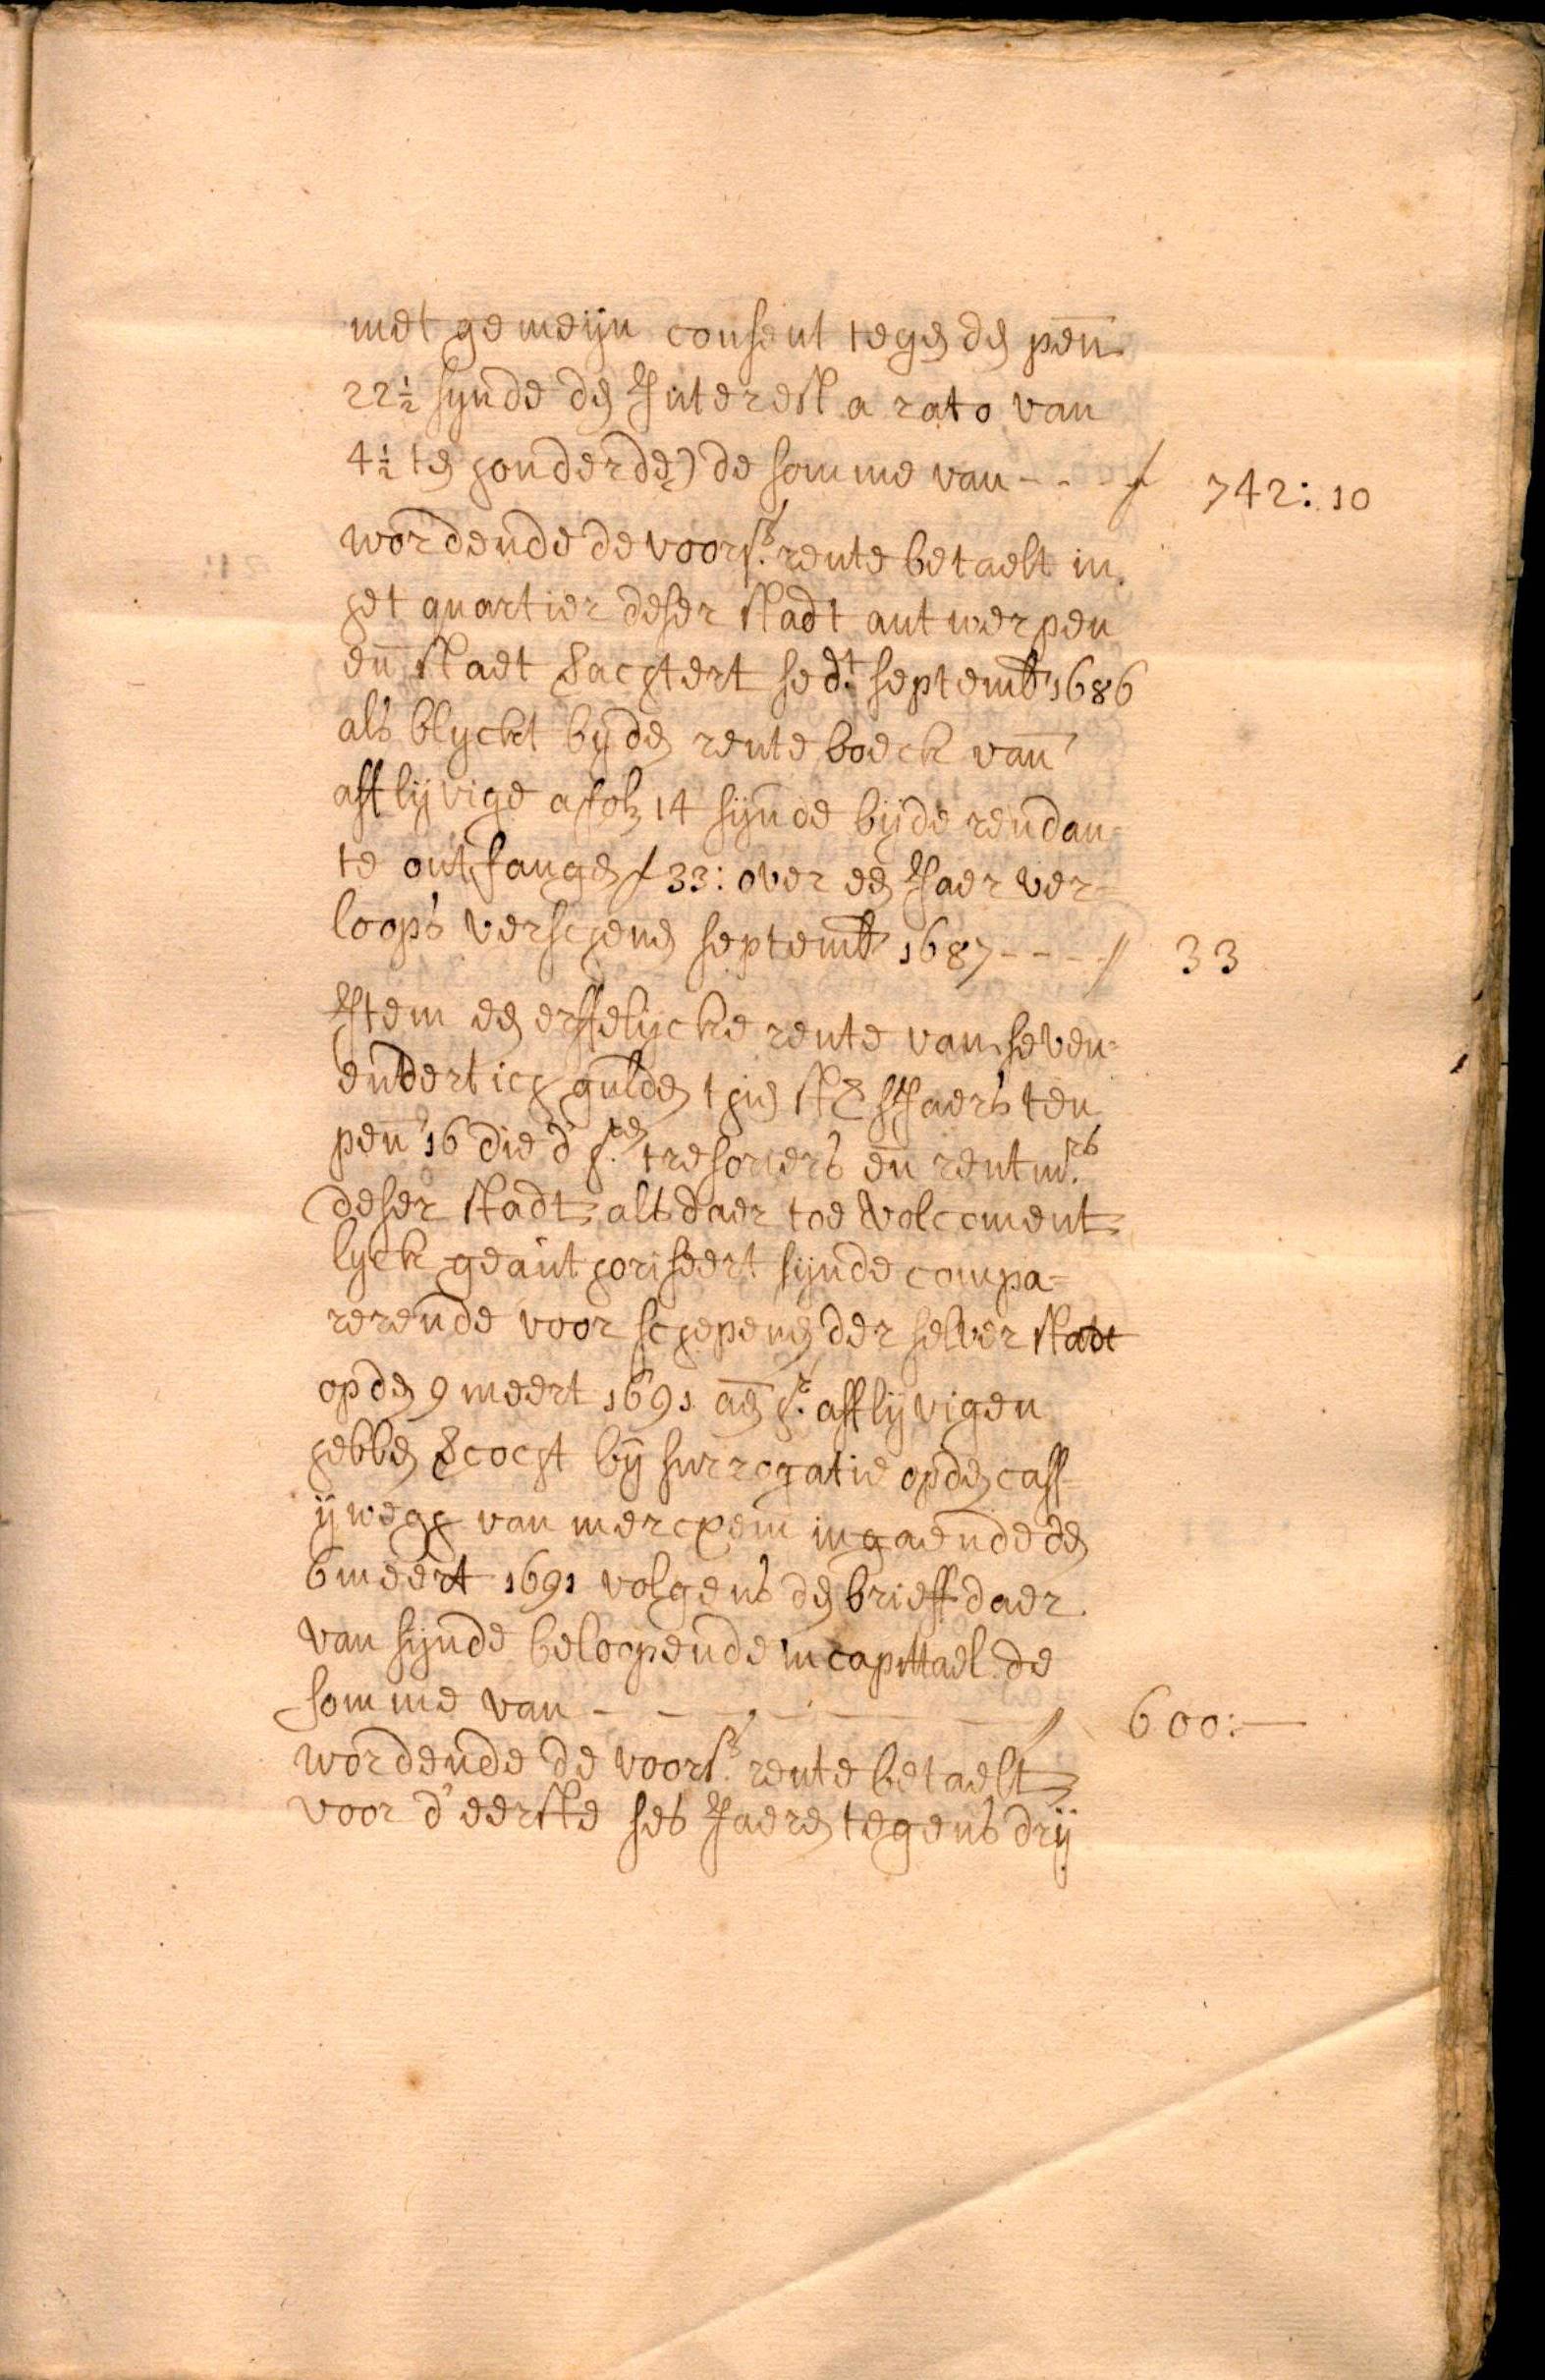 met gemeijn consent tegen den pen̄
22½ synde den Interest a rato van
4½ ten honderden) de somme van - - - f 742: 10
wordende de voors. rente betaelt in
het quartier deser stadt antwerpen
en̄ staet verachtert sedt. septemb 1686
als blyckt by den rente boeck van̄
afflijvige a folz 14 sijnde bijde rendan=
te ontfangen f 33: over een Jaer ver=
loops verschenen septemb 1687 - - - f 33
Item een erffelycke rente van seven=
endertich gulden thien st sJaers ten
pen̄ 16 die d' tresoriers en̄ rentmrs
deser stadt als daer toe volcoment
lyck geauthoriseert sijnde compa=
rerende voor schepenen der selver stadt
op den 9 meert 1691 aen afflijvigen
hebben vercocht bij surrogatie op den cass
ij wegh van mercxem ingaende den
6 meert 1691 volgens den brieff daer
van sijnde beloopende in capittael de
somme van - - - - - f 600:—
wordende de voors. rente betaelt
voor d'eerste ses Jaeren tegens drij